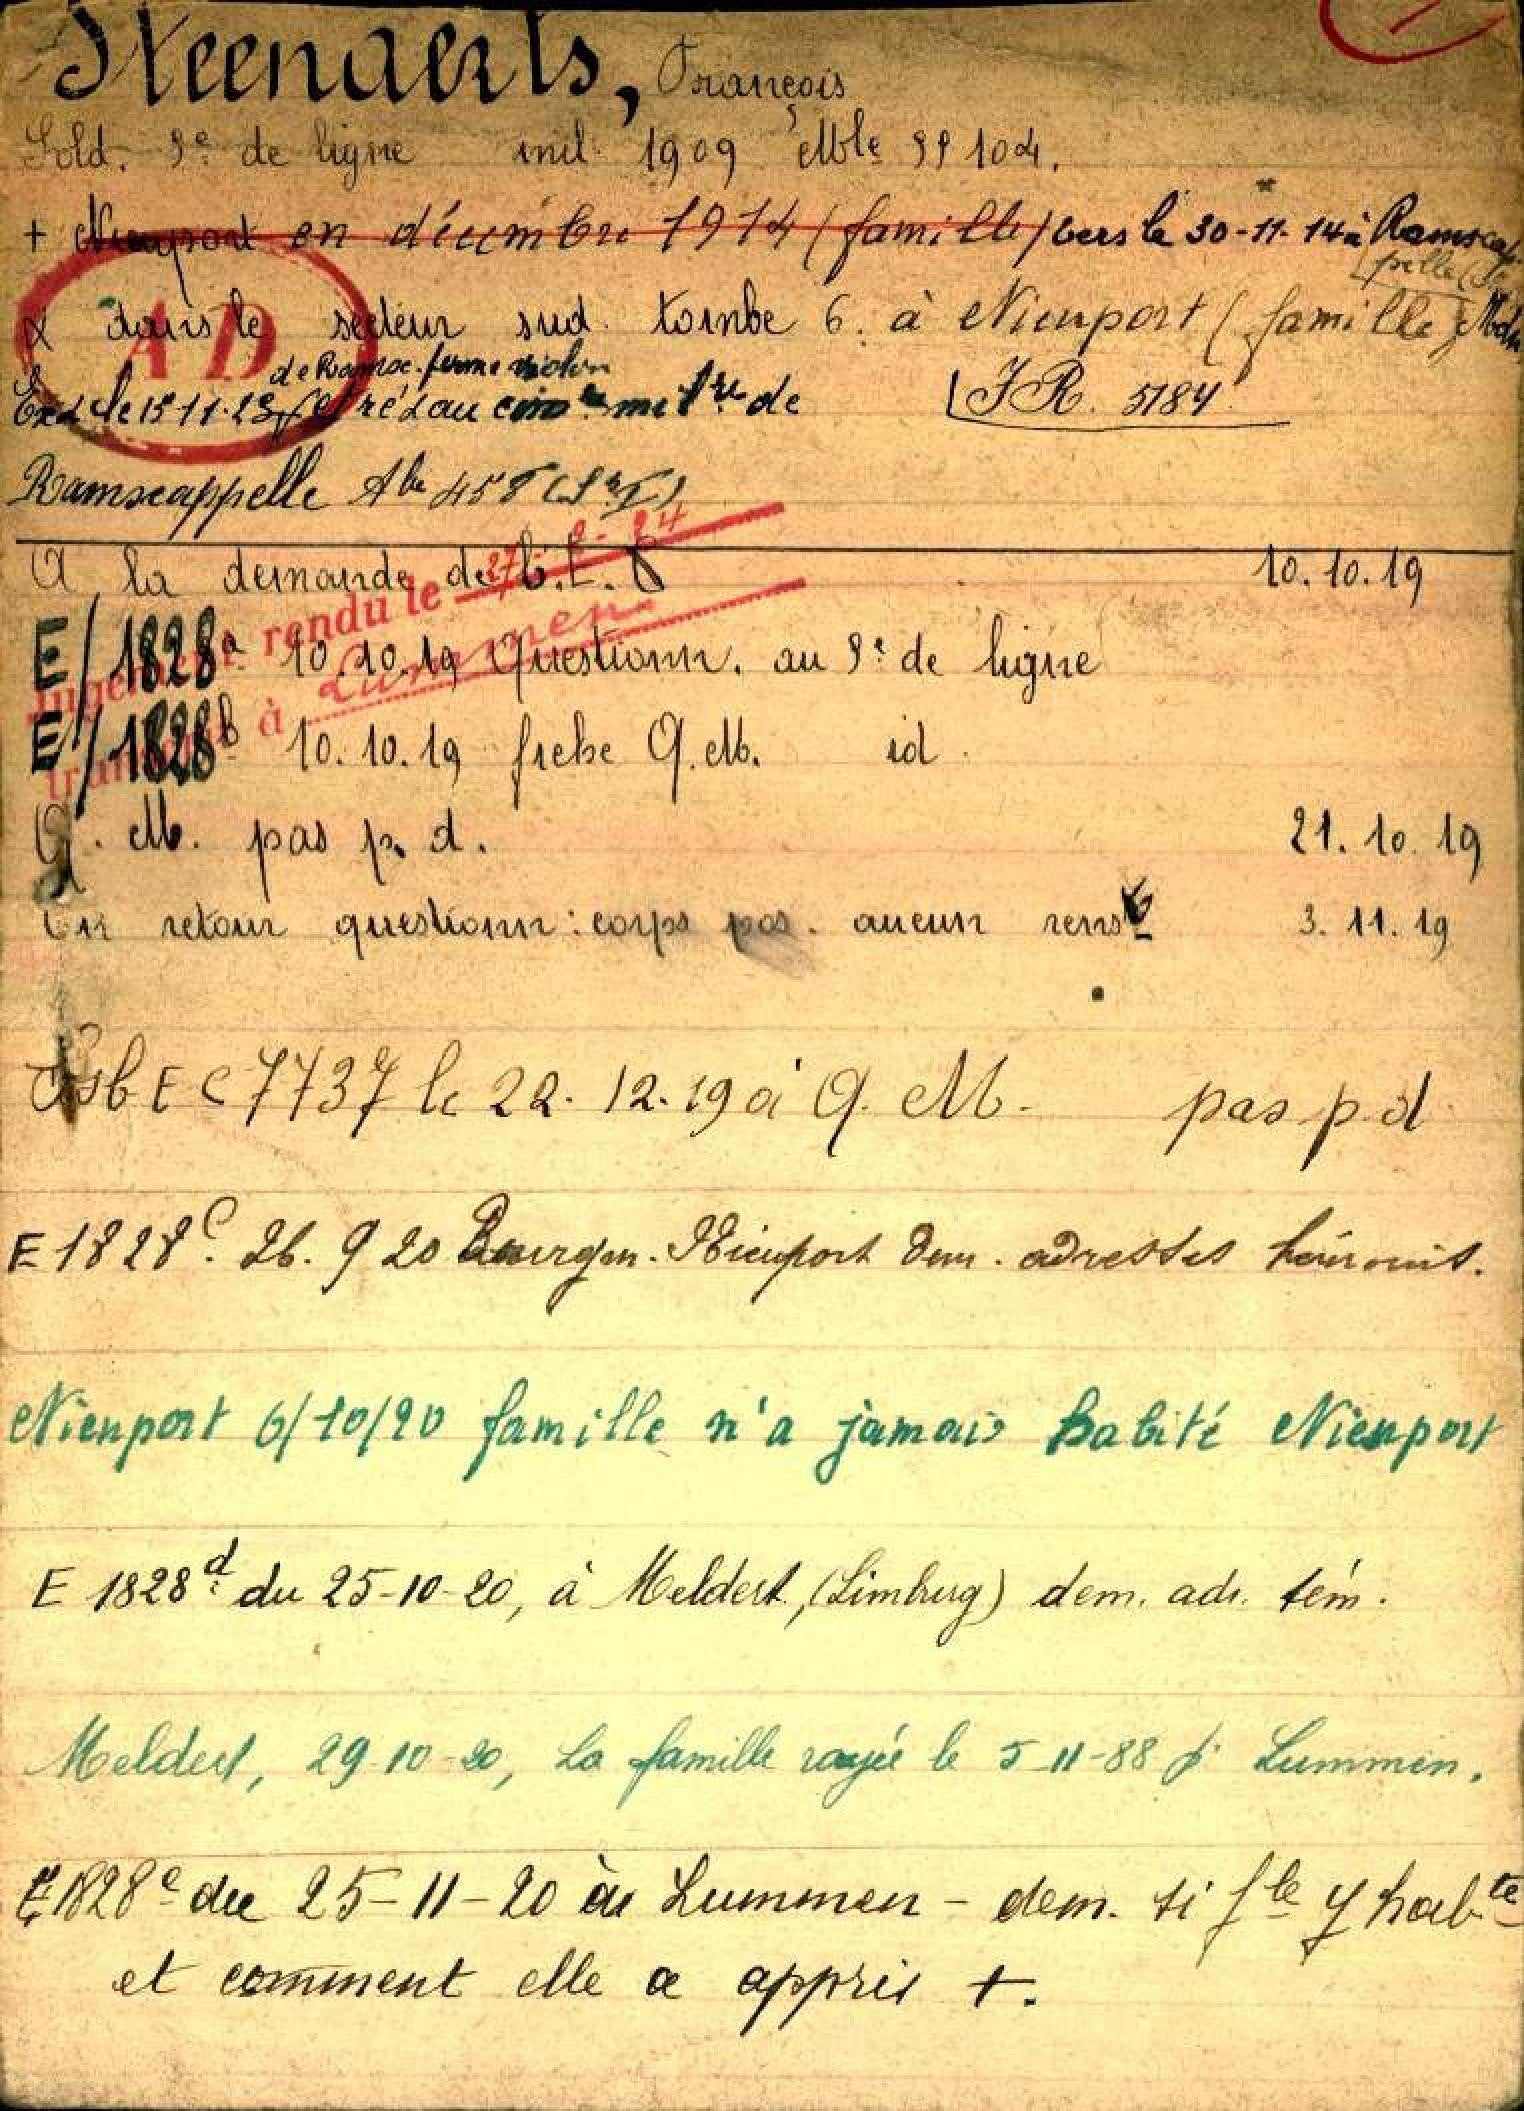 Steenaerts, François
Sold. 9e de ligne mil. 1909 Mle 99104.
+ Nieuport en décembre 1914 (famille) vers le 30-11-14 à Ramscap
pelle
dans le secteur sud. tombe 6. à Nieuport (famille)
AD
de Ramsc. ferme violon
Exh. le 15-11-23 et ré à au cim mil re de
J R. 5184
Ramscappelle A 458
A la demande de 10.10.19
Jugement rendu le 27-2-24
transcrit à Lummen
E/1828a 10.10.19 Questionn. au 9e de ligne
E/1828b 10.10.19 fiche Q.M. id.
Q. M. pas p. d. 21.10.19
En retour questionn: corps pos. aucun rensts 3.11.19
E C 7737 le 22.12.19 à Q. M. pas p.d
E 1828c. 26.9 20 Bourgm. Nieuport dem. adresses témoins.
Nieuport 6/10/20 famille n'a jamais habité Nieuport
E 1828d. du 25-10-20, à Meldert, (Limburg) dem. adr. tém.
Meldert, 29-10-20, La famille rayée le 5-11-88 pr Lummen.
E 1828e du 25-11-20 à Lummen - dem. si fle y habte
et comment elle a appris +.